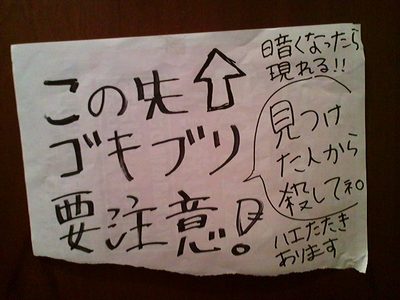 この先⇧
ゴキブリ
要注意!
暗くなったら
現れる!!
見つけ
た人から
殺してネ。
ハエたたき
あります